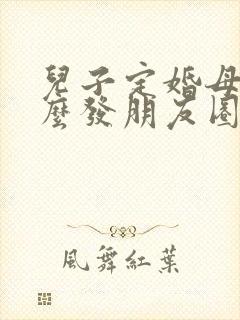 兒子定婚母
麼發朋友圈
風舞紅葉